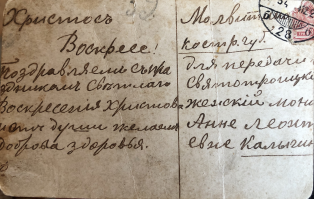 Христосъ
Воскресе!
поздравляемъ съ пра
здникомъ Свѣтлаго
Воскресенія Христов
души желаем
доброва здоровья.
Молвит
костр. губ.
для передачи
Святотроицки
женскій мона
Анне Леонт
евне Калычин